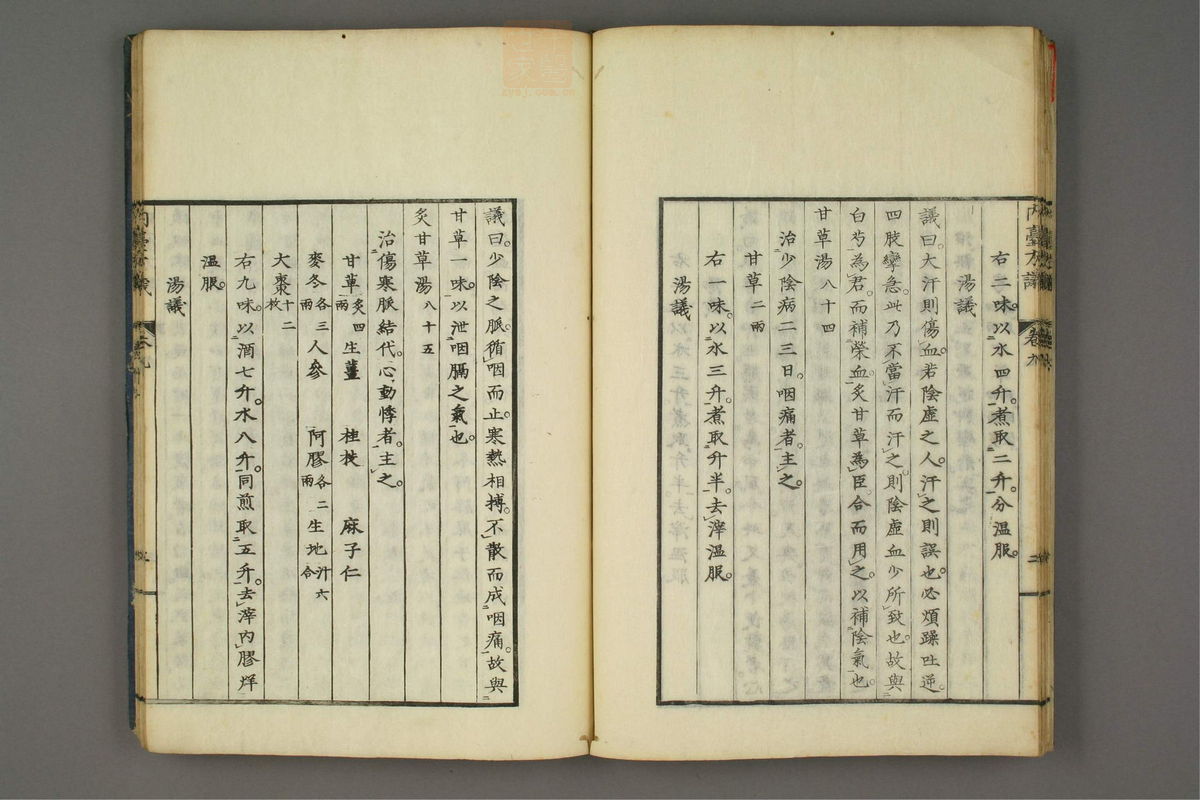 右二味。以水四升。煮取二升。分溫服。
湯議
議曰。大汗則傷血。若陰虛之人。汗之則誤也。必煩躁吐逆。
四肢攣急。此乃不當汗而汗之。則陰虛血少所致也。故與
白芍為君。而補榮血。炙甘草為臣。合而用之。以補陰氣也。
甘草湯 八十四
治少陰病二三日。咽痛者。主之。
甘草 二兩
右一味。以水三升。煮取升半。去滓溫服。
湯議
議曰。少陰之脈。循咽而止。寒熱相搏。不散而成咽痛。故與
甘草一味。以泄咽膈之氣也。
炙甘草湯 八十五
治傷寒脈結代。心動悸者。主之。
甘草 炙四兩 生薑 桂枝 麻子仁
麥冬 各三兩 人參 阿膠 各二兩 生地 汁六合
大棗 十二枚
右九味。以酒七升。水八升。同煎取五升。去滓內膠烊
溫服。
湯議